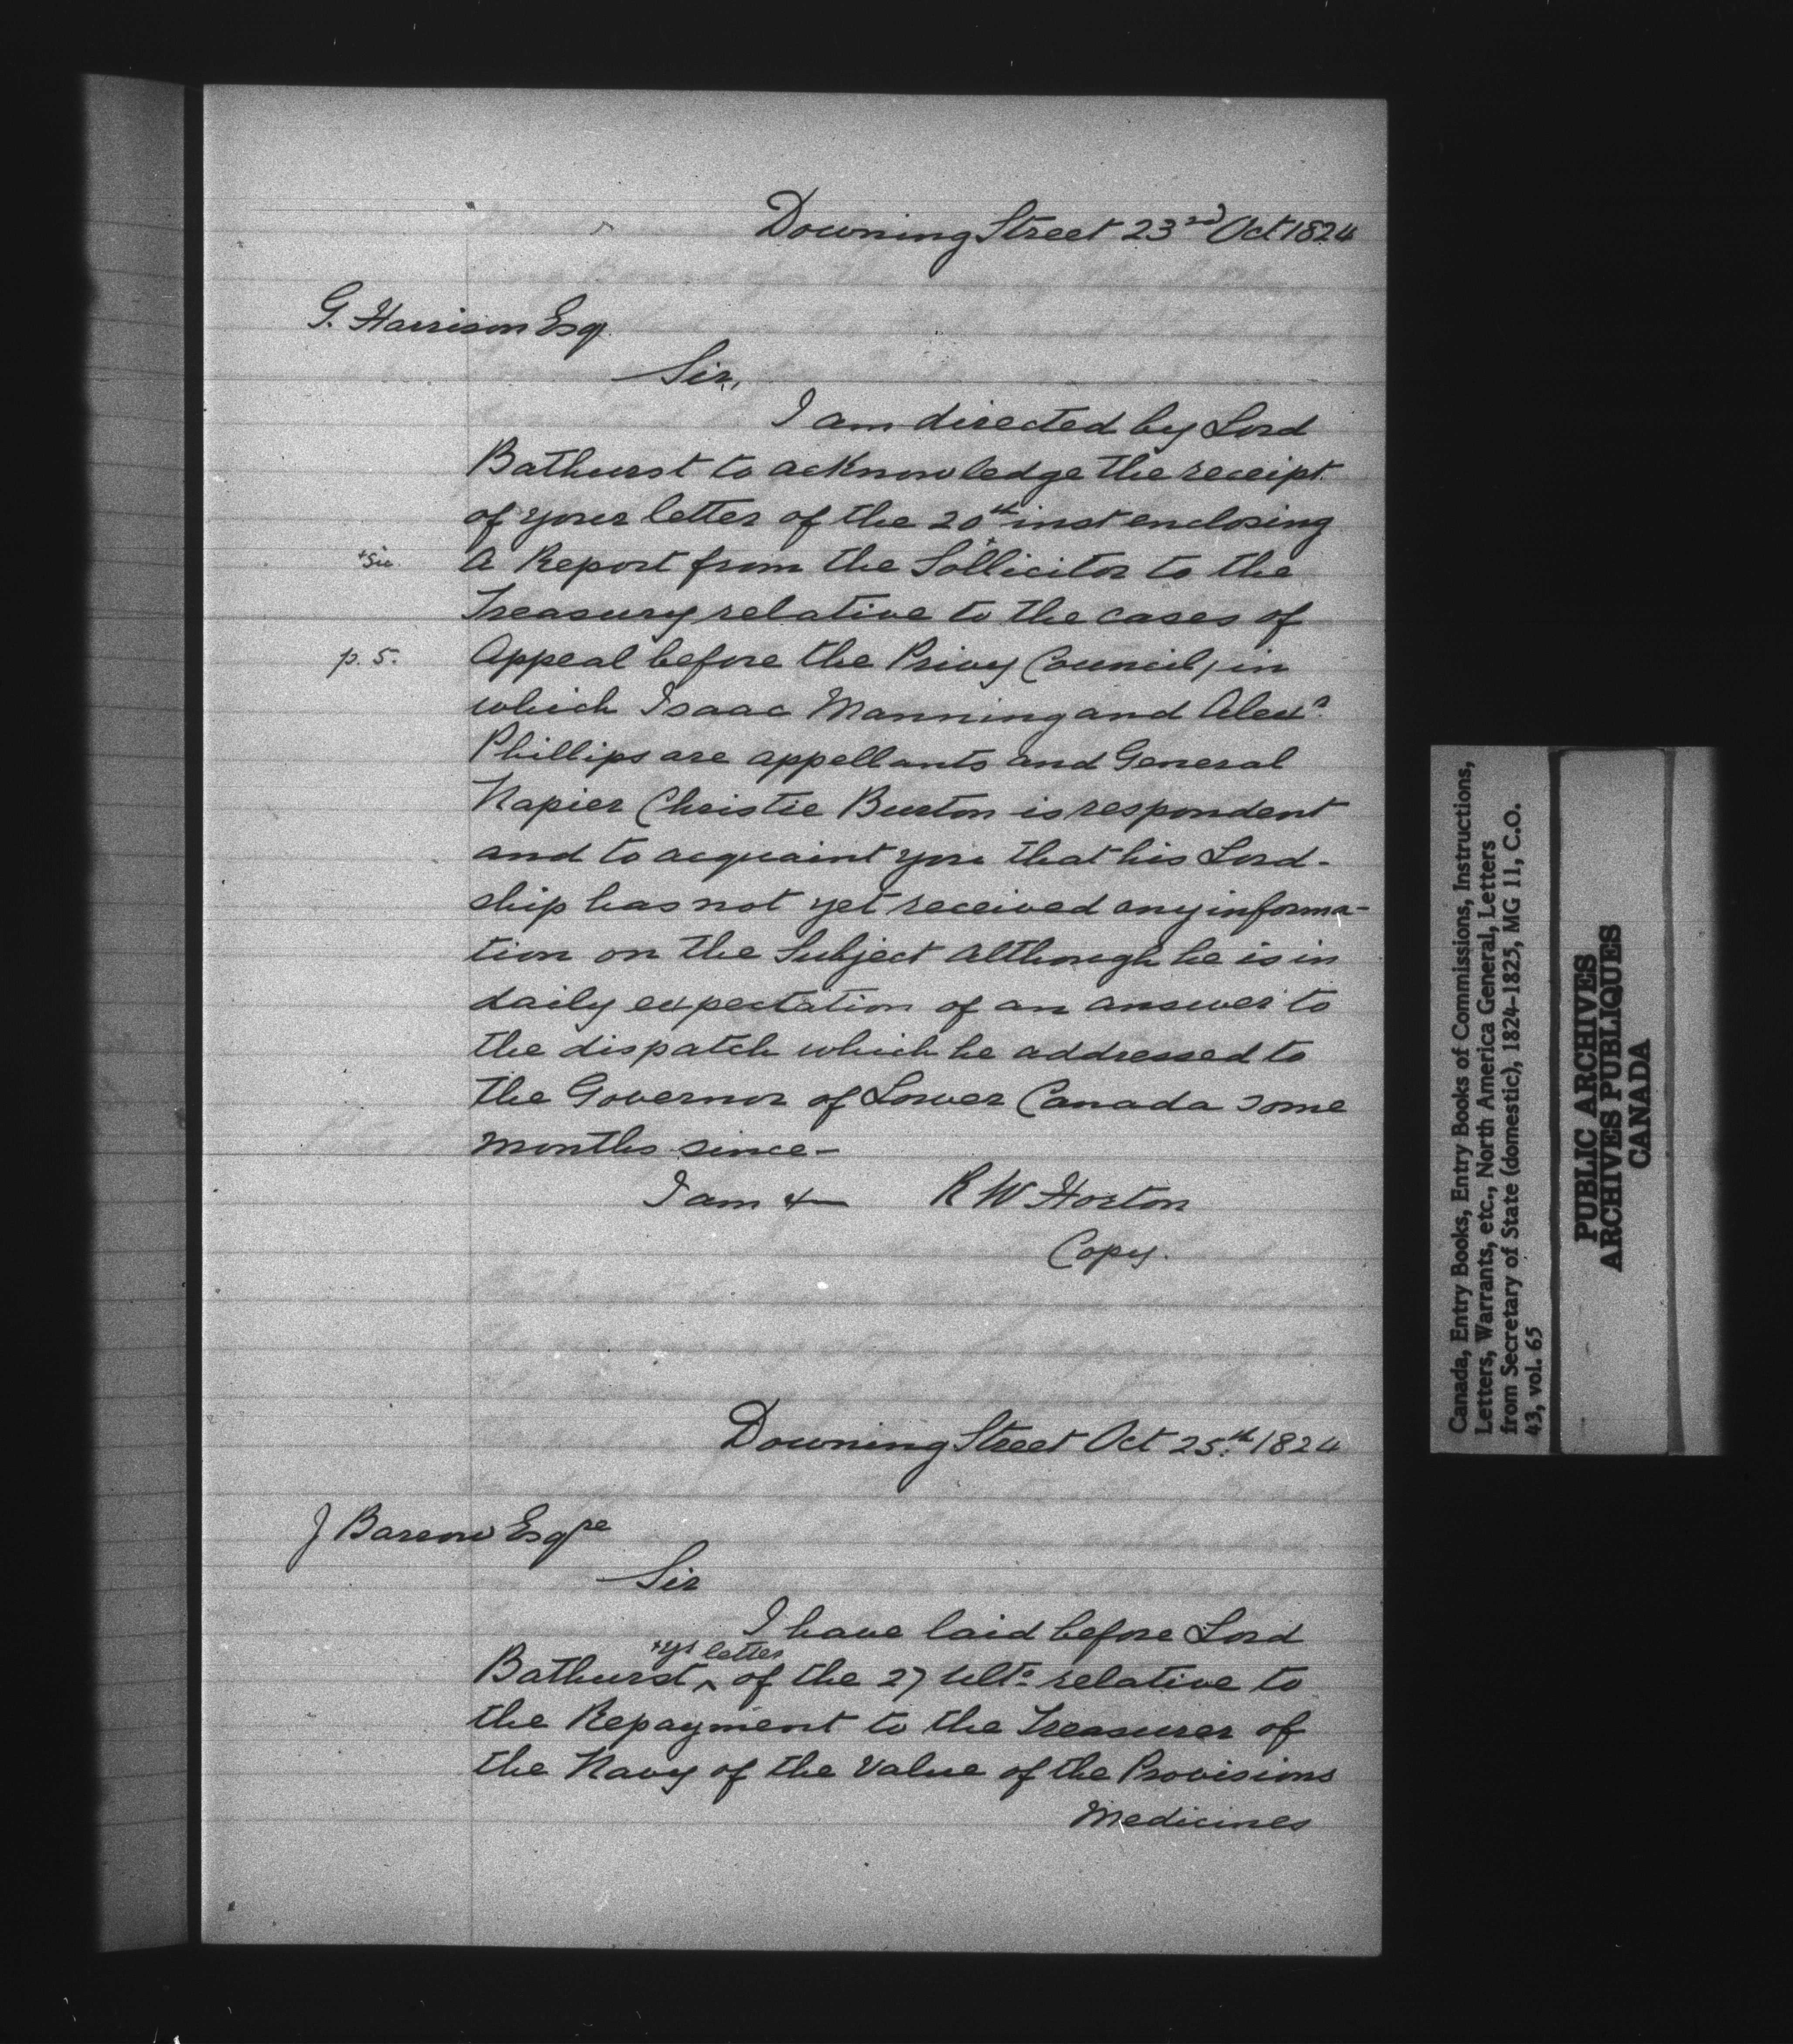 Downing Street 23rd Oct 1824
G. Harrison Esq.
Sir,
I am directed by Lord
Bathurst to acknowledge the receipt
of your letter of the 20th inst enclosing
+sic
A Report from the Sollicitor to the
Treasury relative to the cases of
p. 5.
Appeal before the Privy Council, in
which Isaac Manning and Alexr.
Phillips are appellants and General
Napier Christie Burton is respondent
and to acquaint you that his Lord-
ship has not yet received any informa-
tion on the Subject although he is in
daily expectation of an answer to
the dispatch which he addressed to
the Governor of Lower Canada some
months since-
I am &
R W Horton
Copy.
Downing Street Oct 25th 1824
J Barrow Esqre
Sir
I have laid before Lord
yr letter
Bathurst, ^ of the 27 Ulto relative to
the Repayment to the Treasurer of
the Navy of the Value of the Provisions
Medicines
Canada, Entry Books, Entry Books of Commissions, Instructions,
Letters, Warrants, etc., North America General, Letters
from Secretary of State (domestic), 1824-1825, MG 11, C.O.
43, vol. 65
PUBLIC ARCHIVES
ARCHIVES PUBLIQUES
CANADA